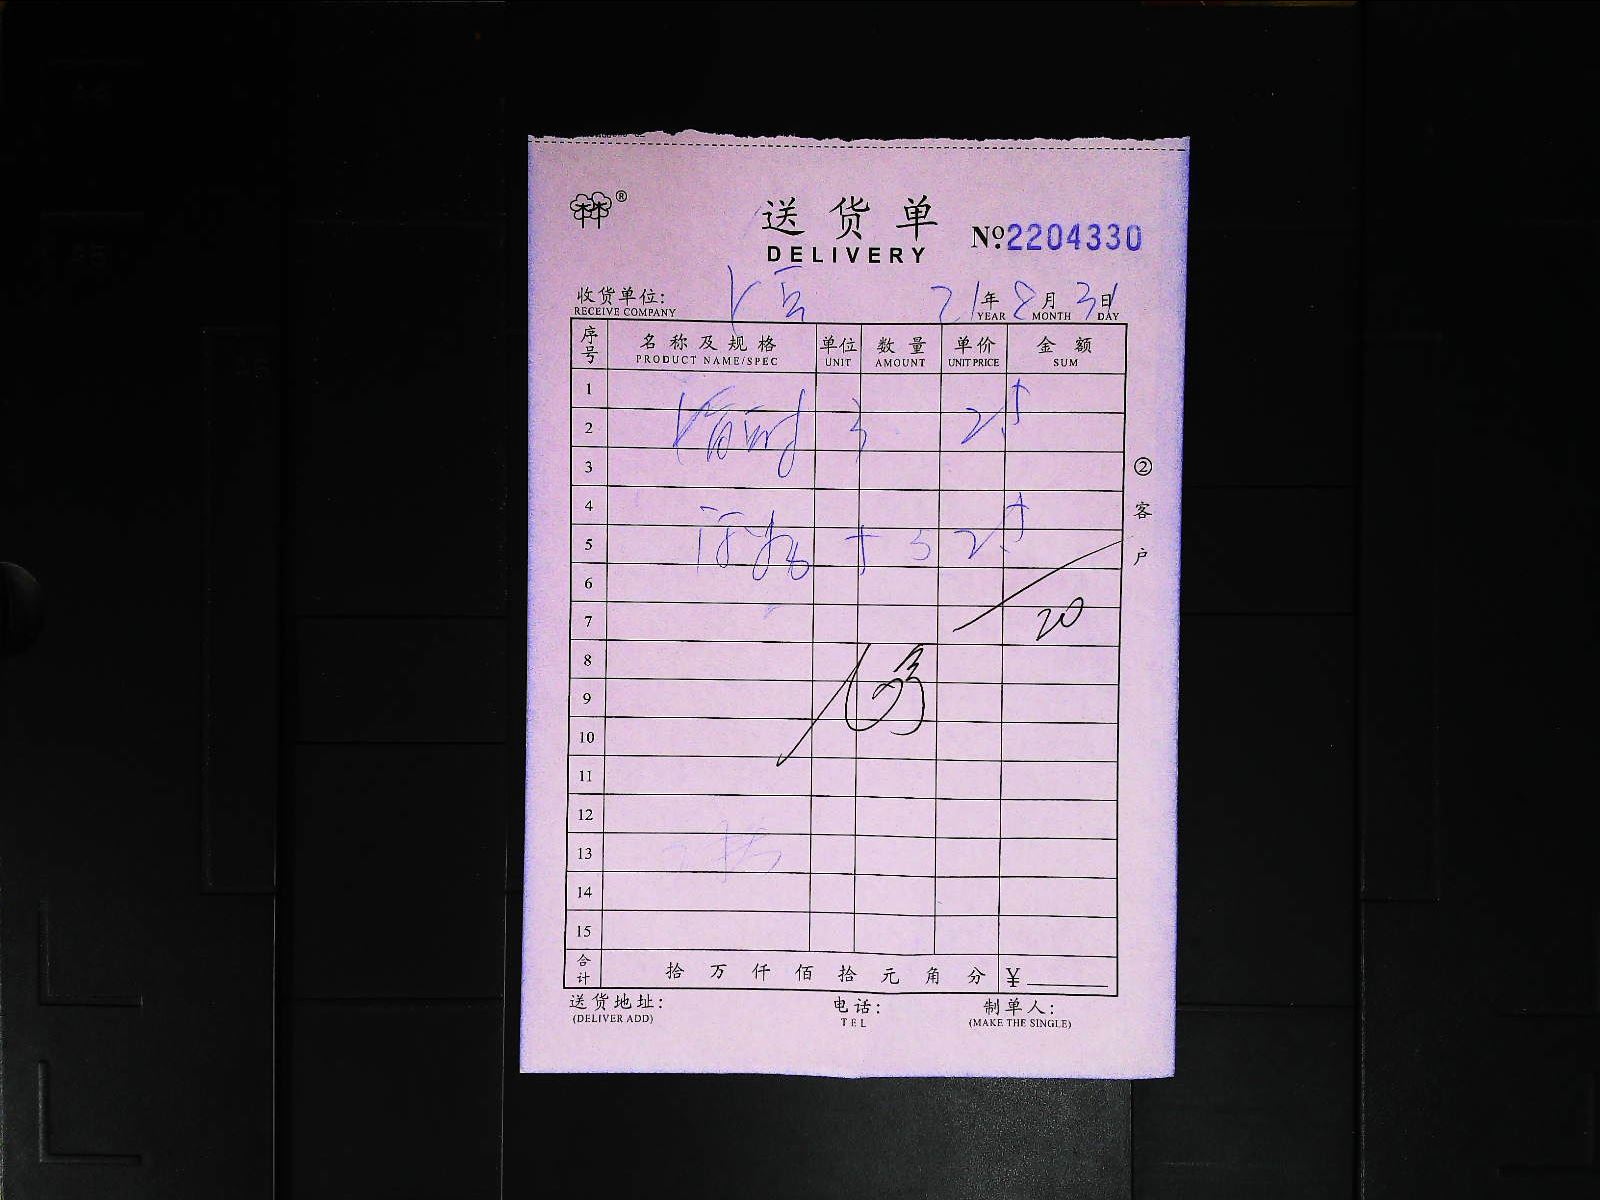 ®
送货单
DELIVERY
No.2204330
收货单位:
RECEIVE COMPANY
21年8月3日
YEAR MONTH DAY
序号 名称及规格 单位 数量 单价 金额
PRODUCT NAME/SPEC UNIT AMOUNT UNIT PRICE SUM
1
2
3
4
5
6
7 20
8
9
10
11
12
13
14
15
合计 拾 万 仟 佰 拾 元 角 分 ¥
送货地址: 电话: 制单人:
(DELIVER ADD) TEL (MAKE THE SINGLE)
②客户